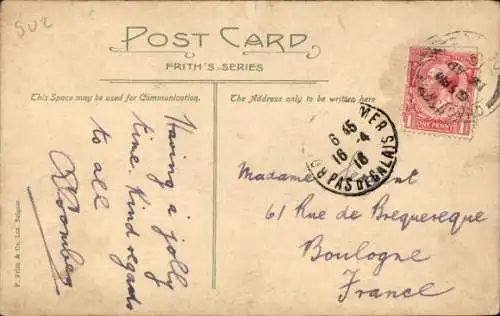 502
POST CARD
FRITH'S SERIES
This Space may be used for Communication.
The Address only to be written here
Having a jolly
time. Kind regards
to all
F. Frith & Co. Ltd. Reigate.
ONE PENNY
MER
6 45
16 - 4
16
PAS DE CALAIS
Madame
61 Rue de Brequereque
Boulogne
France